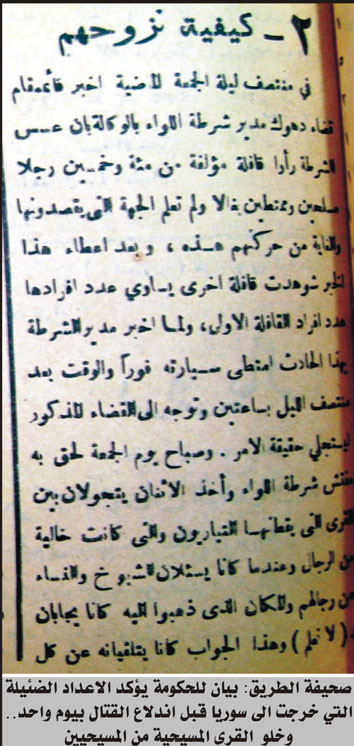 ٢ - كيفية نزوحهم
في منتصف ليلة الجمعة الماضية اخبر قائممقام
قضاء دهوك مدير شرطة اللواء بالوكالة بان عسس
الشرطة رأوا قافلة مؤلفة من مئة وخمسين رجلا
مسلحين وممتطين بغالا ولم تعلم الجهة التي يقصدونها
والغاية من حركتهم هذه ، وبعد اعطاء هذا
الخبر شوهدت قافلة اخرى يساوي عدد افرادها
عدد افراد القافلة الاولى، ولما اخبر مدير الشرطة
بهذا الحادث امتطى سيارته فوراً والوقت بعد
منتصف الليل بساعتين وتوجه الى القضاء المذكور
ليستجلي حقيقة الامر . وصباح يوم الجمعة لحق به
مفتش شرطة اللواء وأخذ الاثنان يتجولان بين
القرى التي يقطنها التياريون والتي كانت خالية
من الرجال وعندما كانا يسئلان الشيوخ والنساء
عن رجالهم والمكان الذي ذهبوا اليه كانا يجابان
( لا نعلم ) وهذا الجواب كانا يتلقيانه عن كل
صحيفة الطريق: بيان للحكومة يؤكد الاعداد الضئيلة
التي خرجت الى سوريا قبل اندلاع القتال بيوم واحد..
وخلو القرى المسيحية من المسيحيين